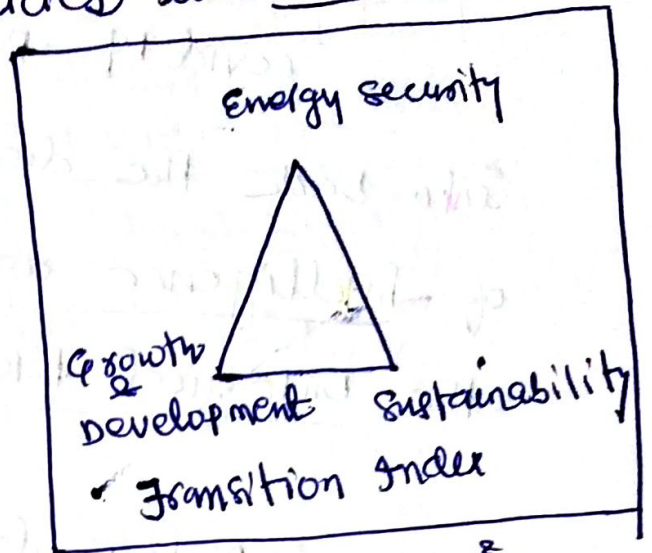 Energy Security
Growth
&
Development Sustainability
• Transition Index
&